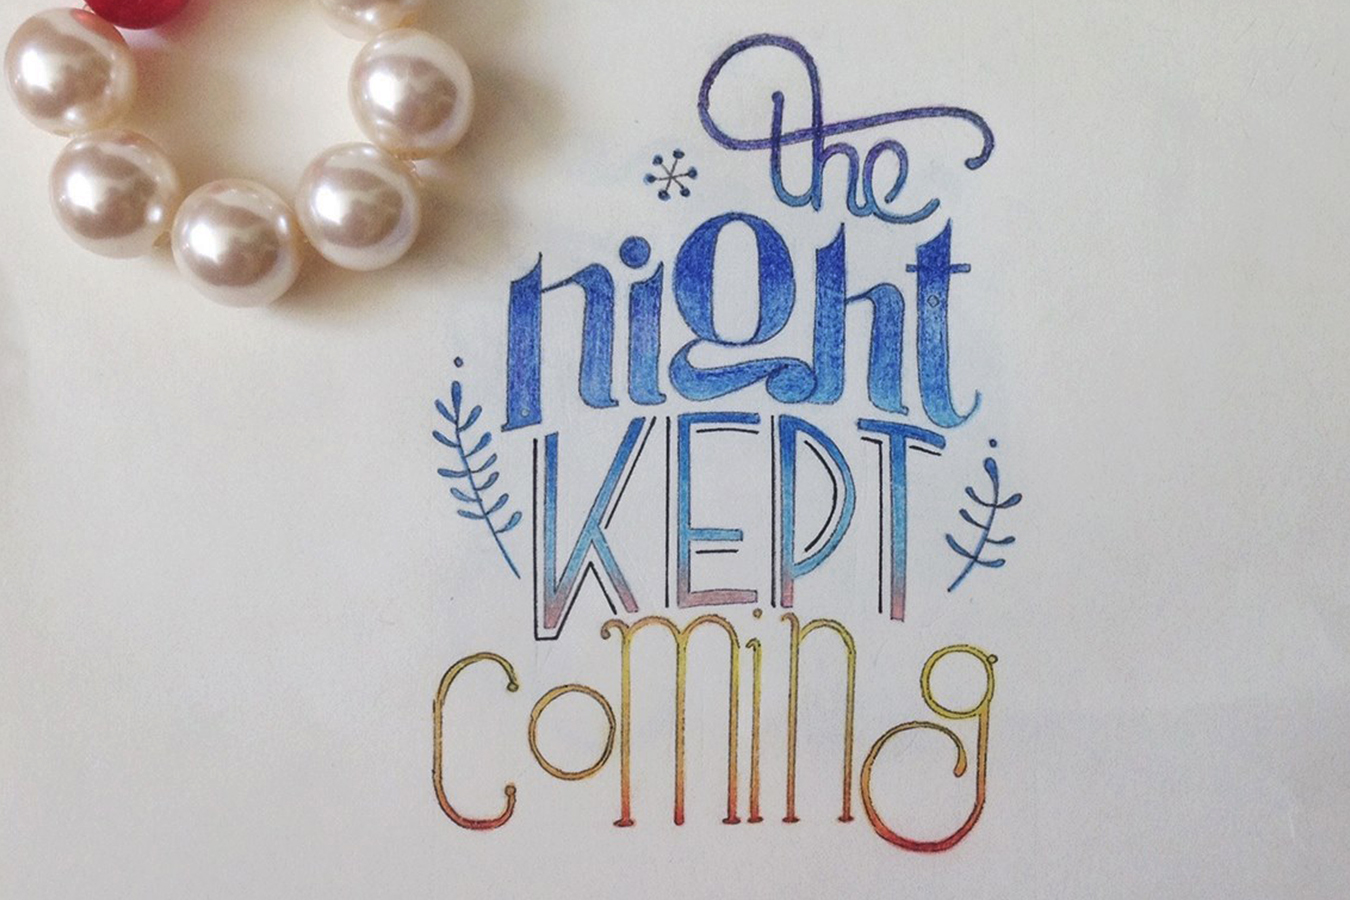 the
night
KEPT
coming